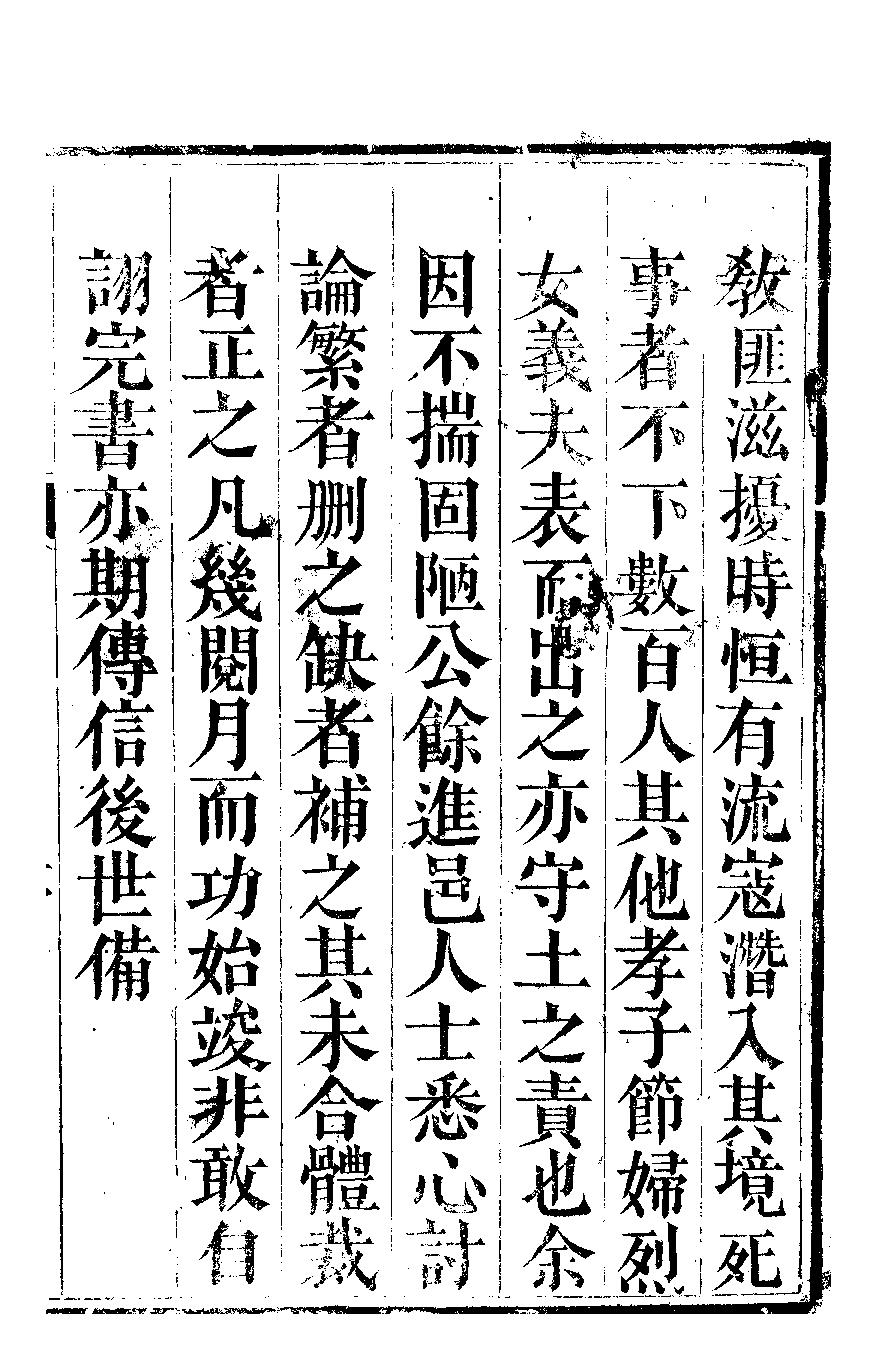 教匪滋擾時恒有流寇潛入其境死
事者不下數百人其他孝子節婦烈
女義夫表而出之亦守土之責也余
因不揣固陋公餘進邑人士悉心討
論繁者刪之缺者補之其未合體裁
者正之凡幾閱月而功始竣非敢自
詡完書亦期傳信後世備